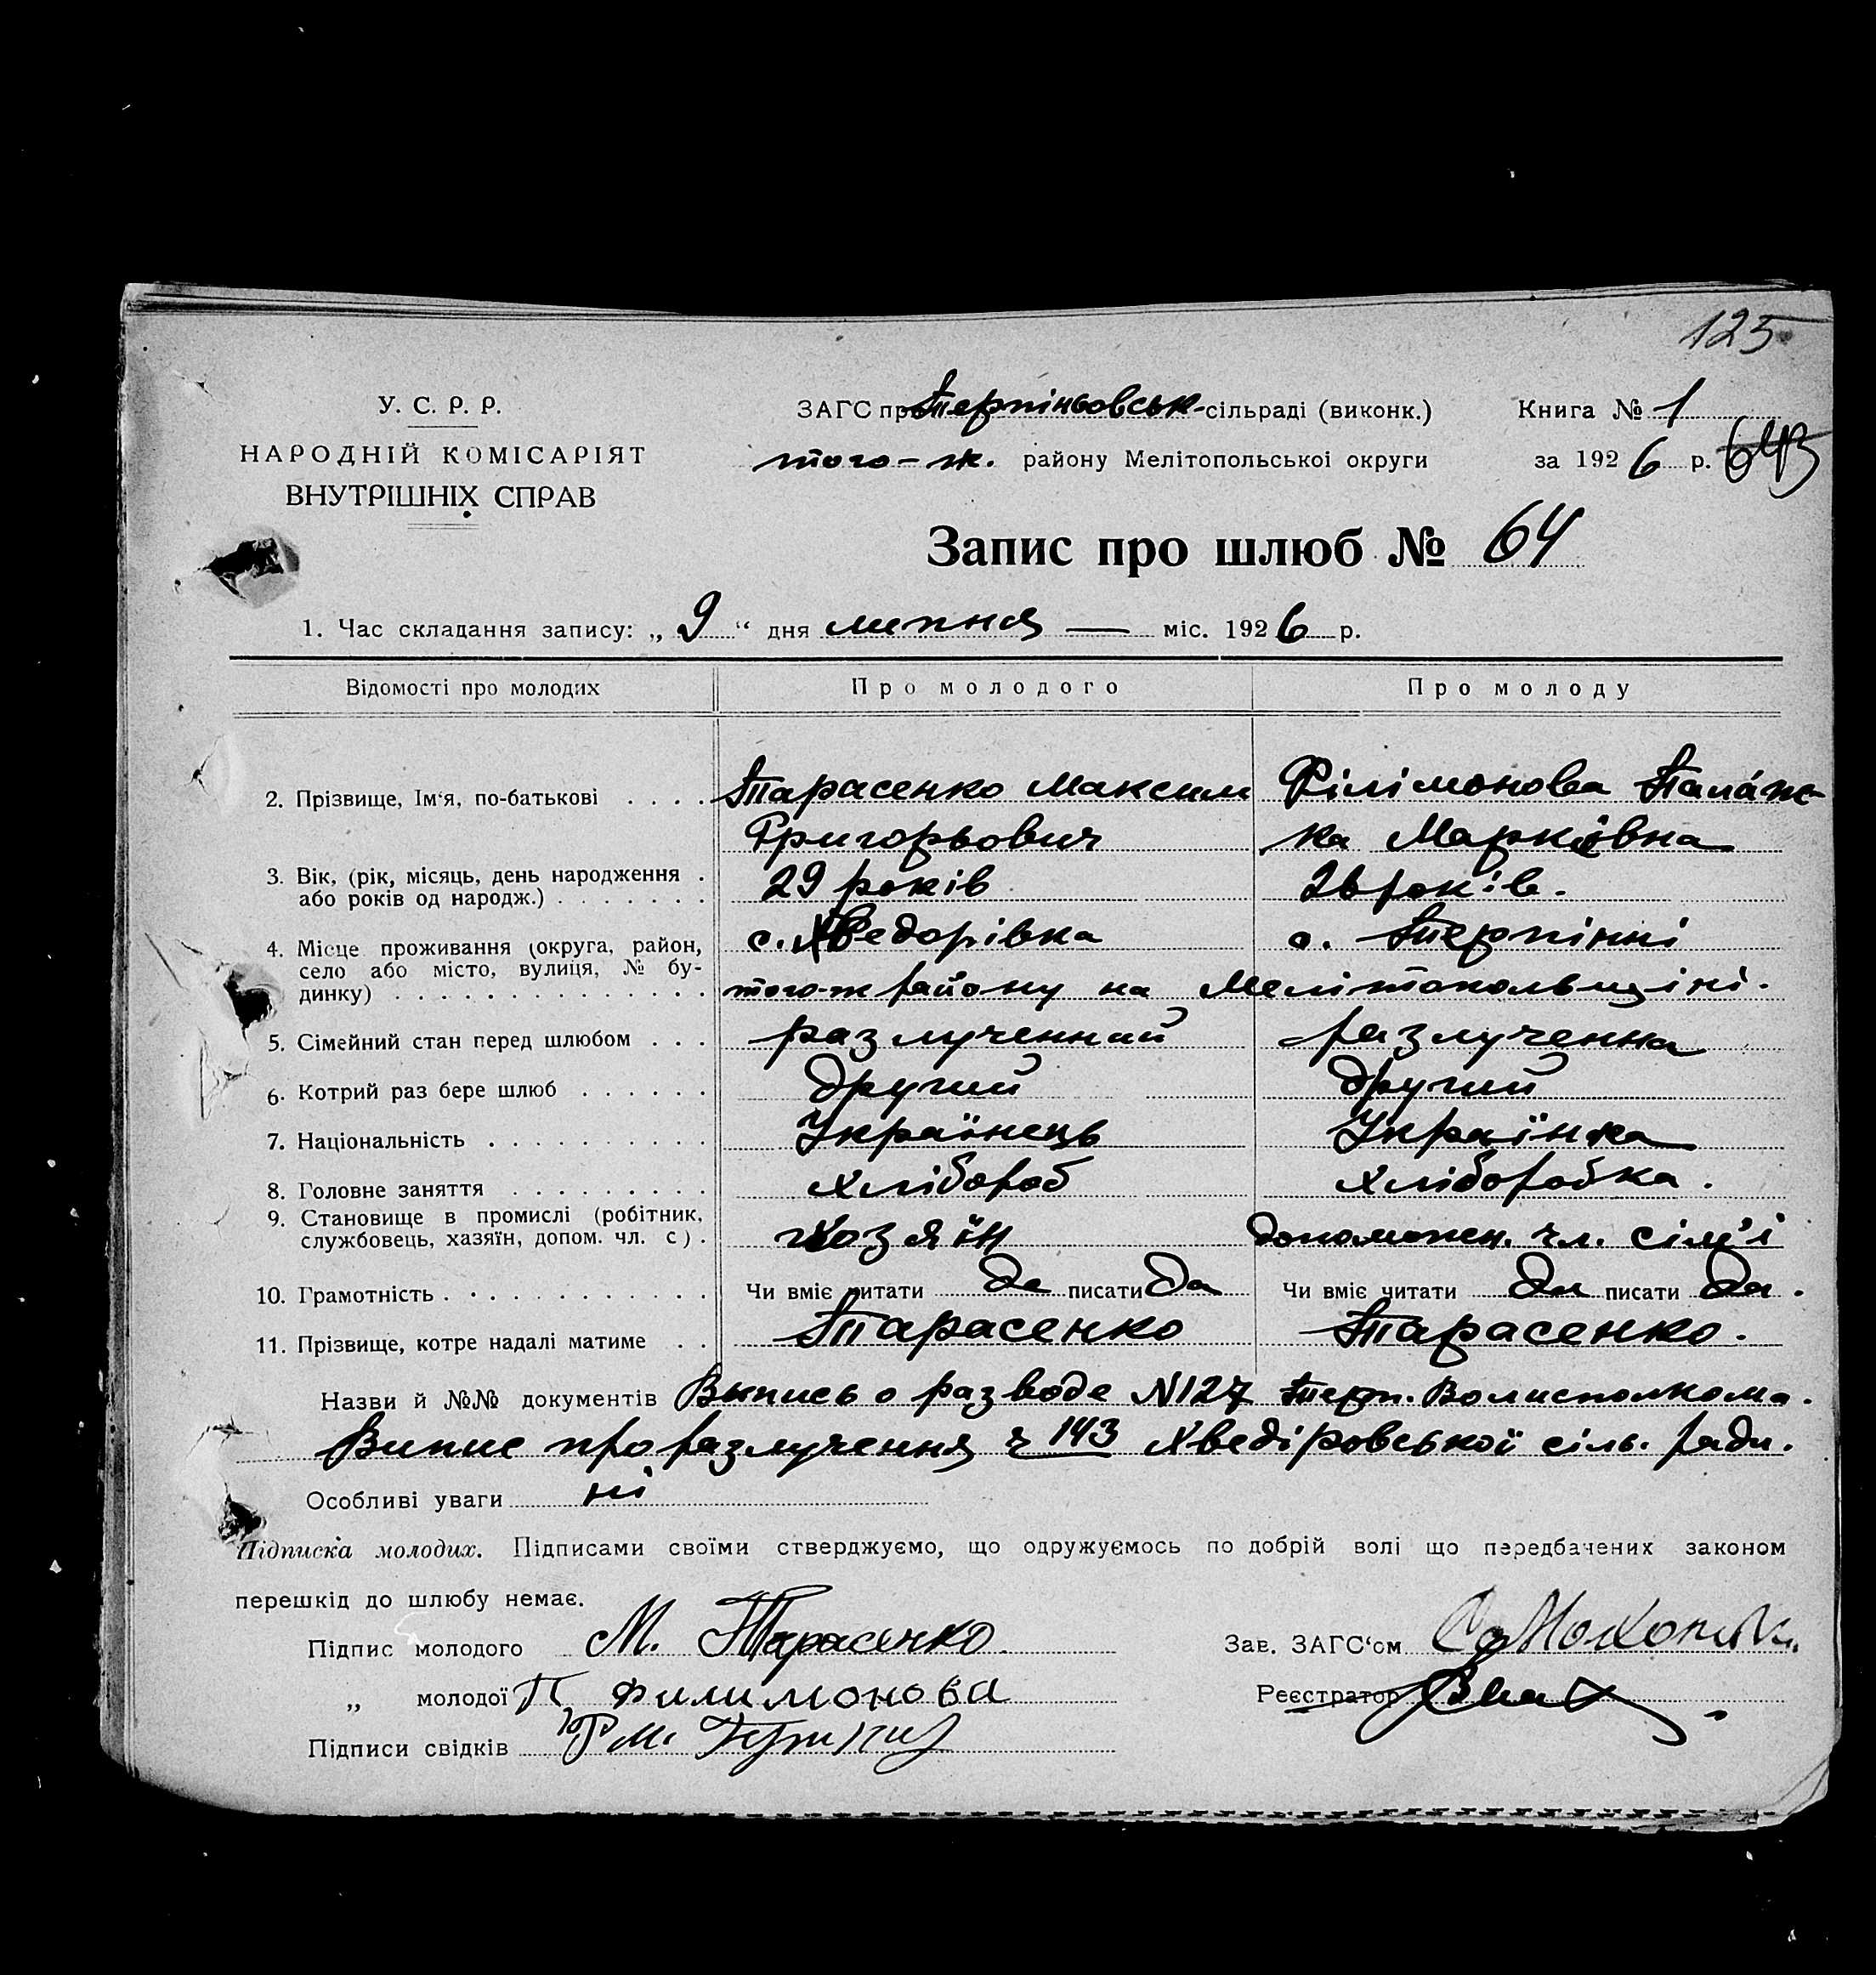 125
У. С. Р. Р.
НАРОДНІЙ КОМІСАРІЯТ
ВНУТРІШНІХ СПРАВ
ЗАГС при Терпіньовськ-сільраді (виконк.)
того-ж. району Мелітопольської округи
Книга № 1
за 1926 р.
Запис про шлюб № 64
1. Час складання запису: „ 9 “ дня липня — міс. 1926 р.
Відомості про молодих Про молодого Про молоду
2. Прізвище, Ім‘я, по-батькові . . . . Тарасенко Максим Філімонова Палаж-
Григорьович ка Марківна
3. Вік, (рік, місяць, день народження . 29 років 26 років.
або років од народж.) . . . . . . .
4. Місце проживання (округа, район, с. Хведорівка с. Терпінні
село або місто, вулиця, № бу-
динку) . . . . . . . . . . . . . . того-ж району на Мелітопольщіні.
5. Сімейний стан перед шлюбом . . . разлученний разлученна
6. Котрий раз бере шлюб . . . . . . другий другий
7. Національність . . . . . . . . . . Українець Українка
8. Головне заняття . . . . . . . . . хлібороб хліборобка.
9. Становище в промислі (робітник,
службовець, хазяїн, допом. чл. с) . хозяїн допоможн. чл. сім'ї
10. Грамотність . . . . . . . . . . . . Чи вміє читати да писати да Чи вміє читати да писати да.
11. Прізвище, котре надалі матиме . . Тарасенко Тарасенко.
Назви й №№ документів Выпись о разводе N127 Терп. Волисполкома.
Випис про разлучення ч 143 Хведіровської сіль. ради.
Особливі уваги ні
Підписка молодих. Підписами своїми стверджуємо, що одружуємось по добрій волі що передбачених законом
перешкід до шлюбу немає.
Підпис молодого М. Тарасенко
Зав. ЗАГС‘ом
„ молодої П Филимонова
Реєстратор
Підписи свідків